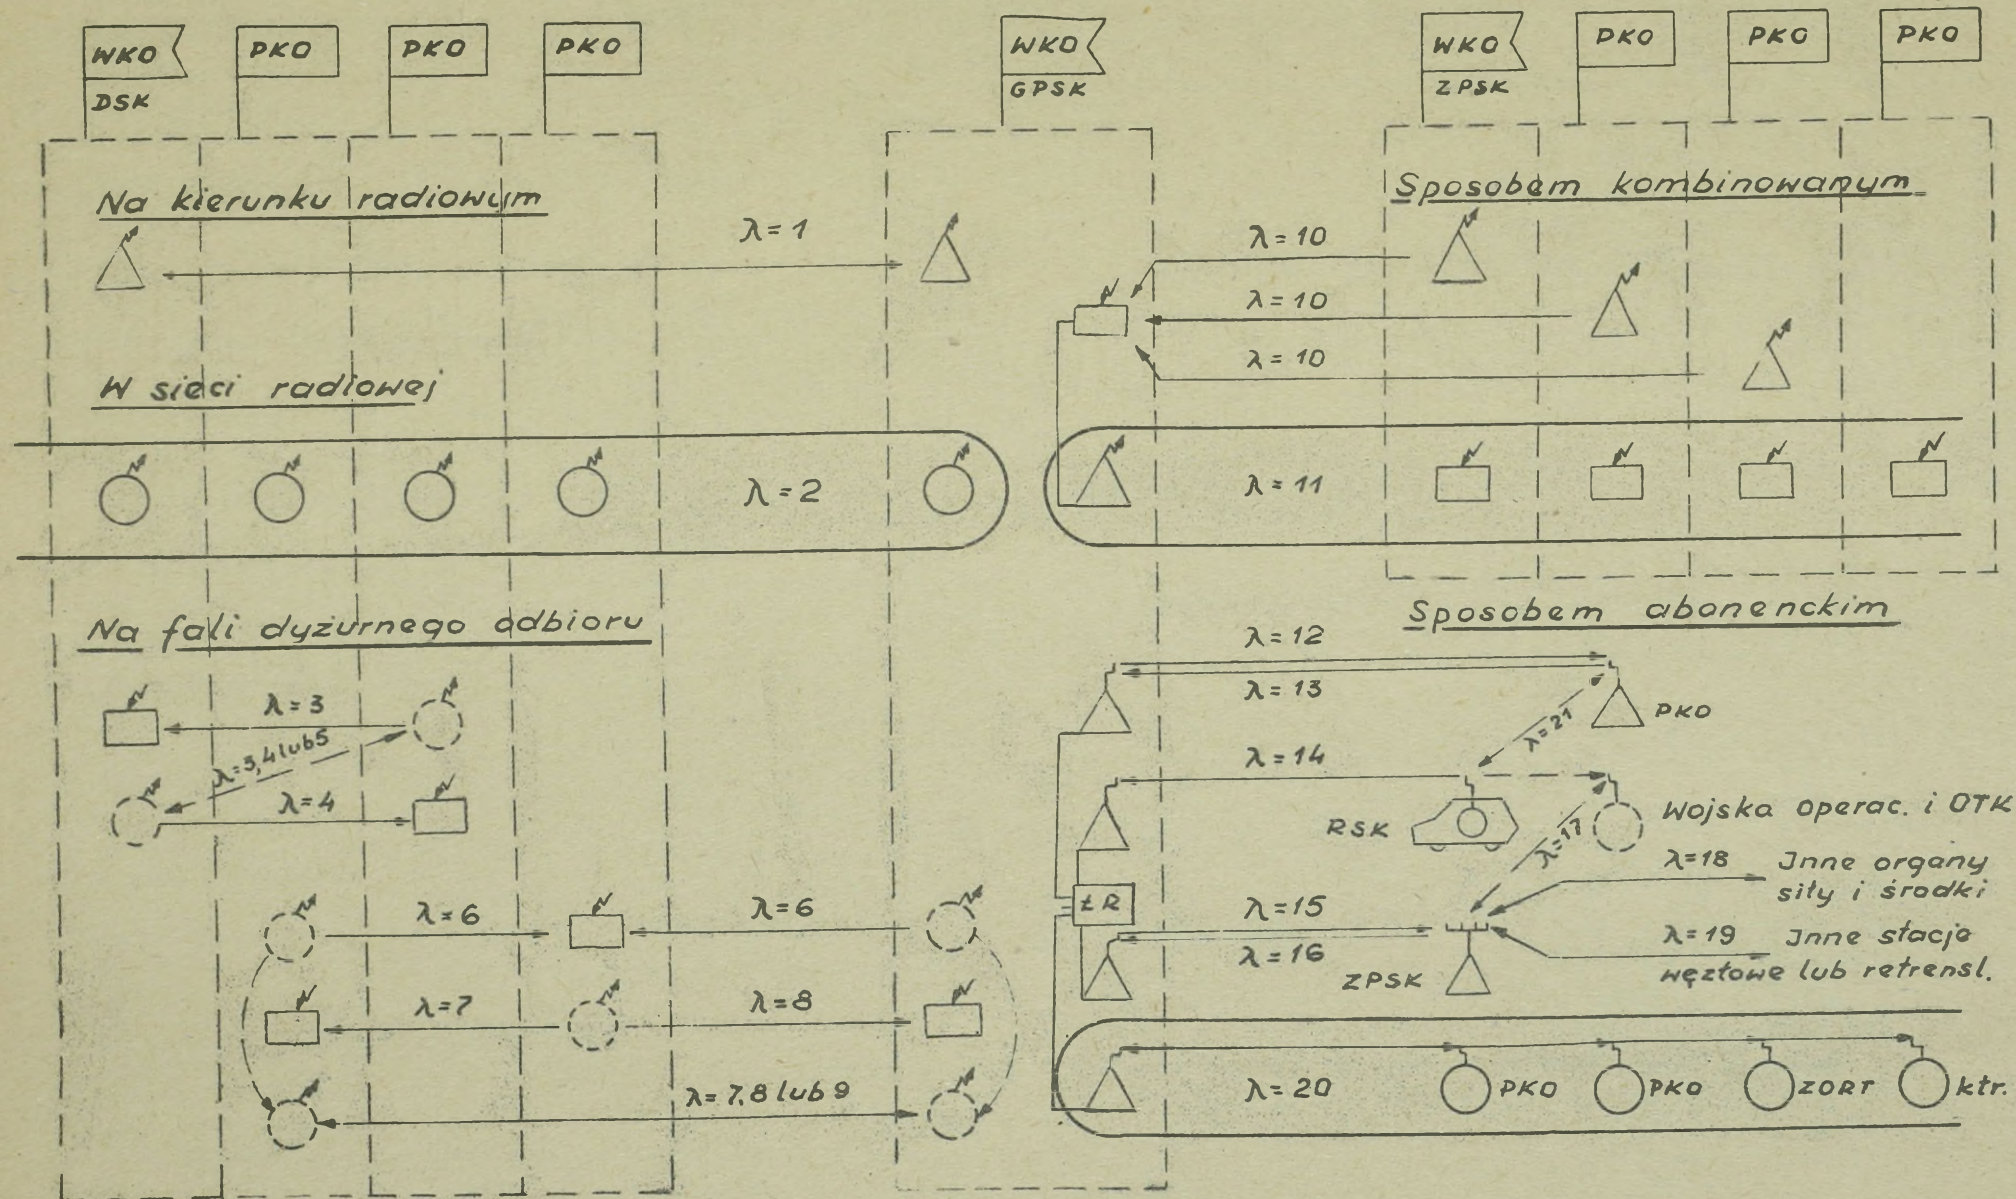 WKO
DSK
PKO
PKO
PKO
WKO
GPSK
WKO
ZPSK
PKO
PKO
PKO
Na kierunku radiowym
λ = 1
W sieci radiowej
λ = 2
Na fali dyżurnego odbioru
λ = 3
λ=3,4 lub5
λ=4
λ=6
λ=6
λ=7
λ=8
λ= 7,8 lub 9
Sposobem kombinowanym
λ = 10
λ = 10
λ = 10
λ = 11
Sposobem abonenckim
λ = 12
λ = 13
λ=21
PKO
λ = 14
RSK
Wojska operac. i OTK
λ=17
λ=18
Inne organy
siły i środki
Ł R
λ = 15
λ = 16
ZPSK
λ=19
Inne stacje
węztowe lub retrensl.
λ = 20
PKO
PKO
ZORT
ktr.